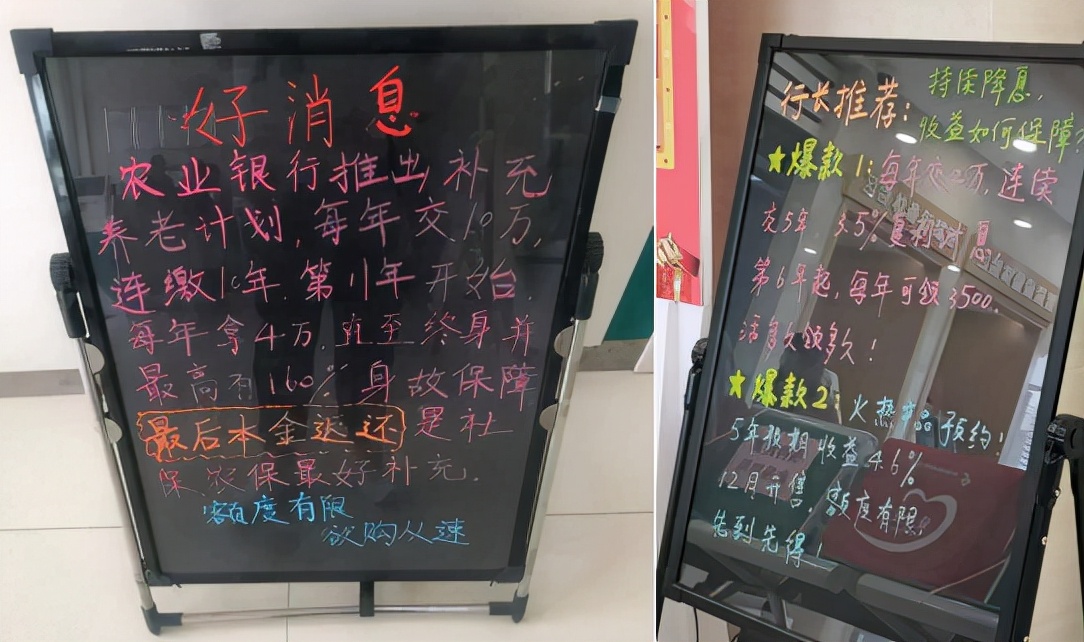 好消息
农业银行推出补充
养老计划,每年交10万,
连缴10年.第11年开始.
每年拿4万.直至终身并
最高有160%身故保障
最后本金返还是社
保.农保最好补充.
额度有限
欲购从速
行长推荐:
持续降息,
收益如何保障?
★爆款1:每年交 万,连续
交5年 3.5%复利
第6年起,每年可领3500
活多久领多久!
★爆款2:火热产品预约!
5年预期收益4.6%
12月开售,额度有限,
先到先得!